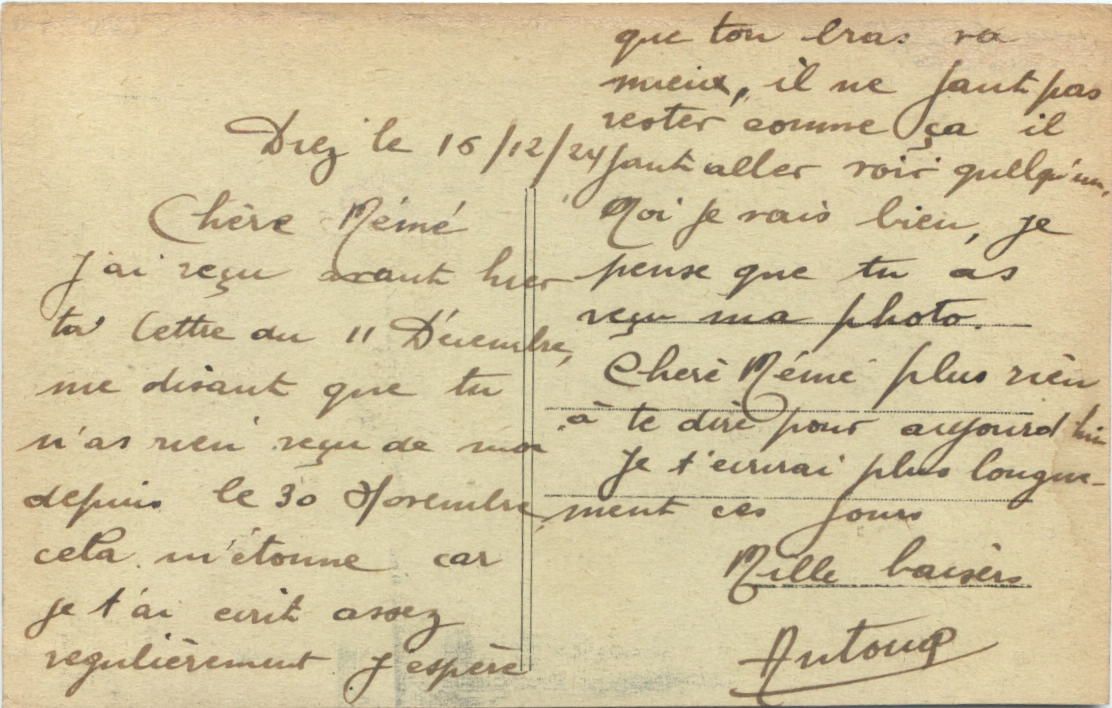 Diez le 16/12/24
Chère Mémé
J'ai reçu avant hier
ta lettre du 11 Décembre,
me disant que tu
n'as rien reçu de moi
depuis le 30 Novembre,
cela m'étonne car
je t'ai ecrit assez
regulièrement J'espère
que ton bras va
mieux, il ne faut pas
rester comme ça il
faut aller voir quelqu'un,
Moi je vais bien, je
pense que tu as
reçu ma photo.
Cherè Mémé plus rien
à te dire pour aujourd'hui
Je t'ecrirai plus longue-
ment ces jours
Mille baisers